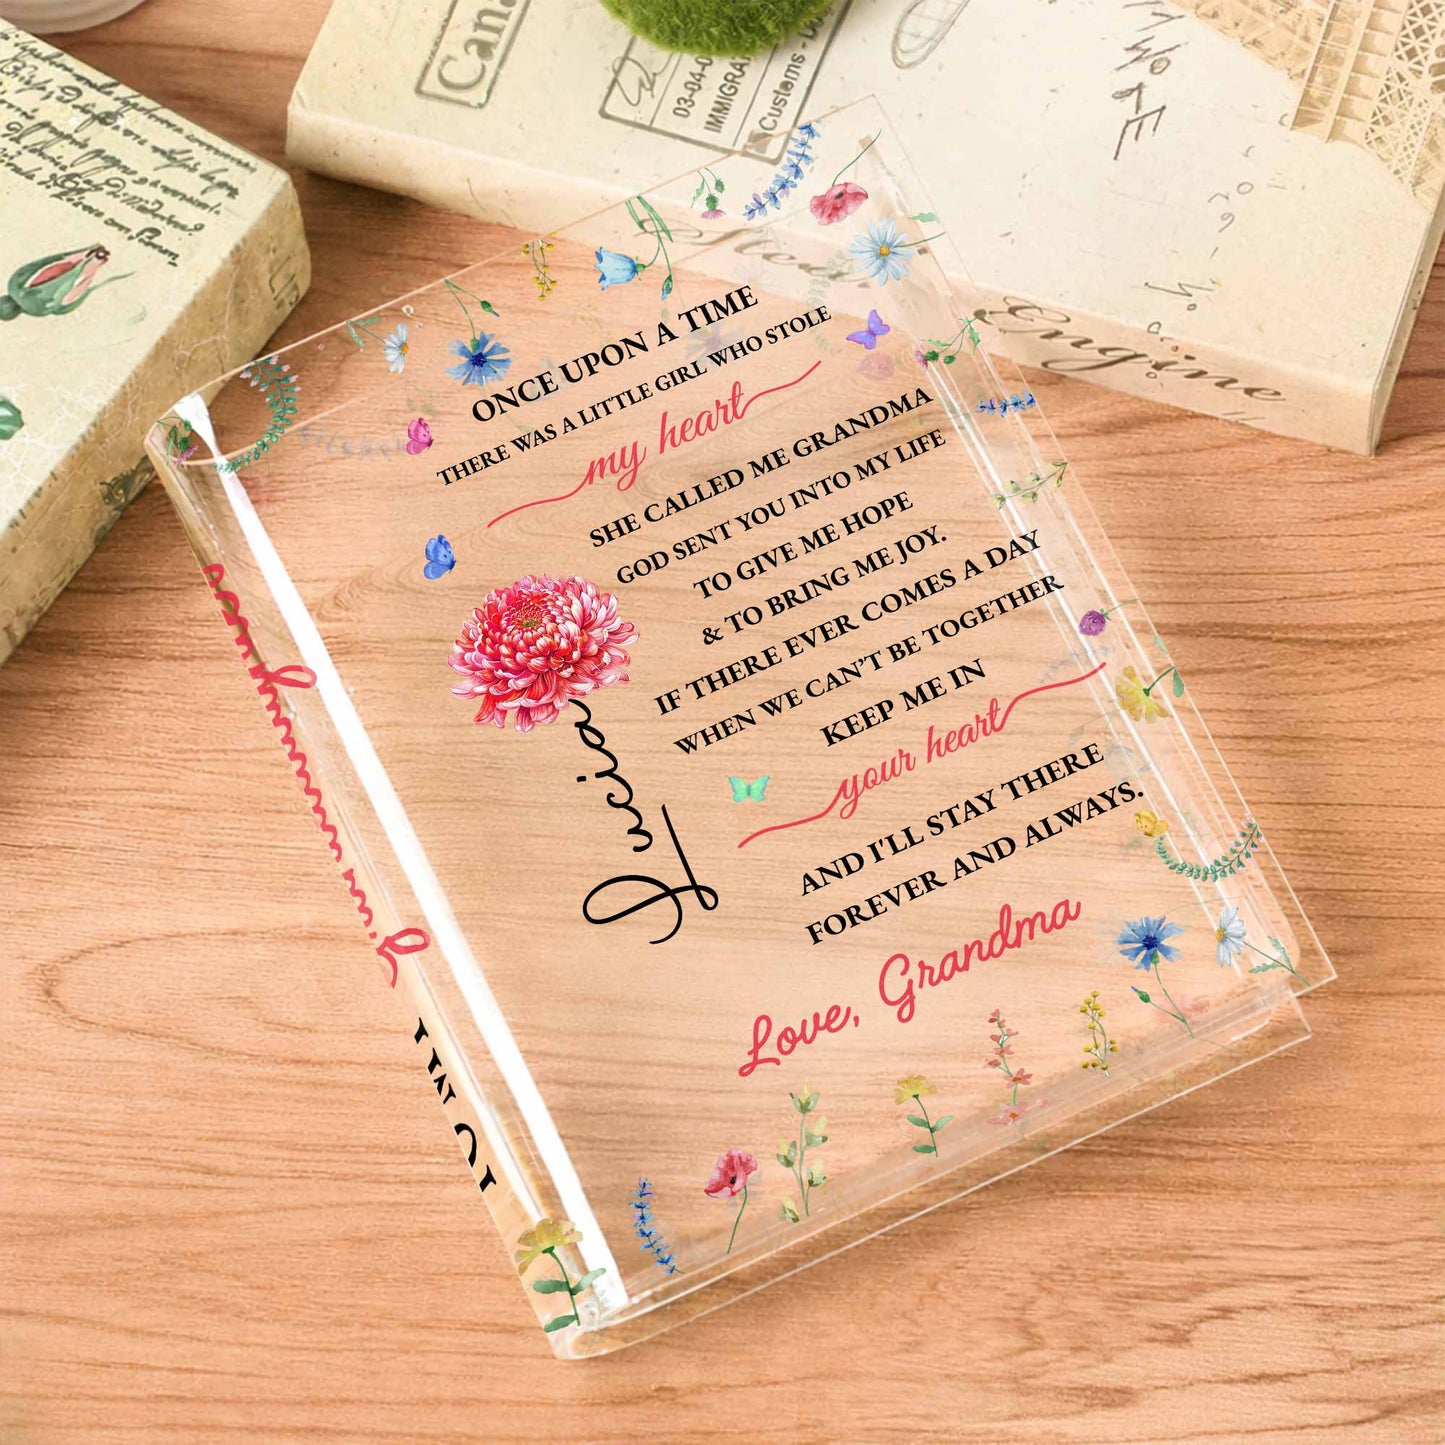 ONCE UPON A TIME
THERE WAS A LITTLE GIRL WHO STOLE
my heart
SHE CALLED ME GRANDMA
GOD SENT YOU INTO MY LIFE
TO GIVE ME HOPE
& TO BRING ME JOY.
IF THERE EVER COMES A DAY
WHEN WE CAN’T BE TOGETHER
KEEP ME IN
your heart
AND I'LL STAY THERE
FOREVER AND ALWAYS.
Love, Grandma
Lucia
TO MY
Can
03-04-0
IMMIGRA
Customs
Engine